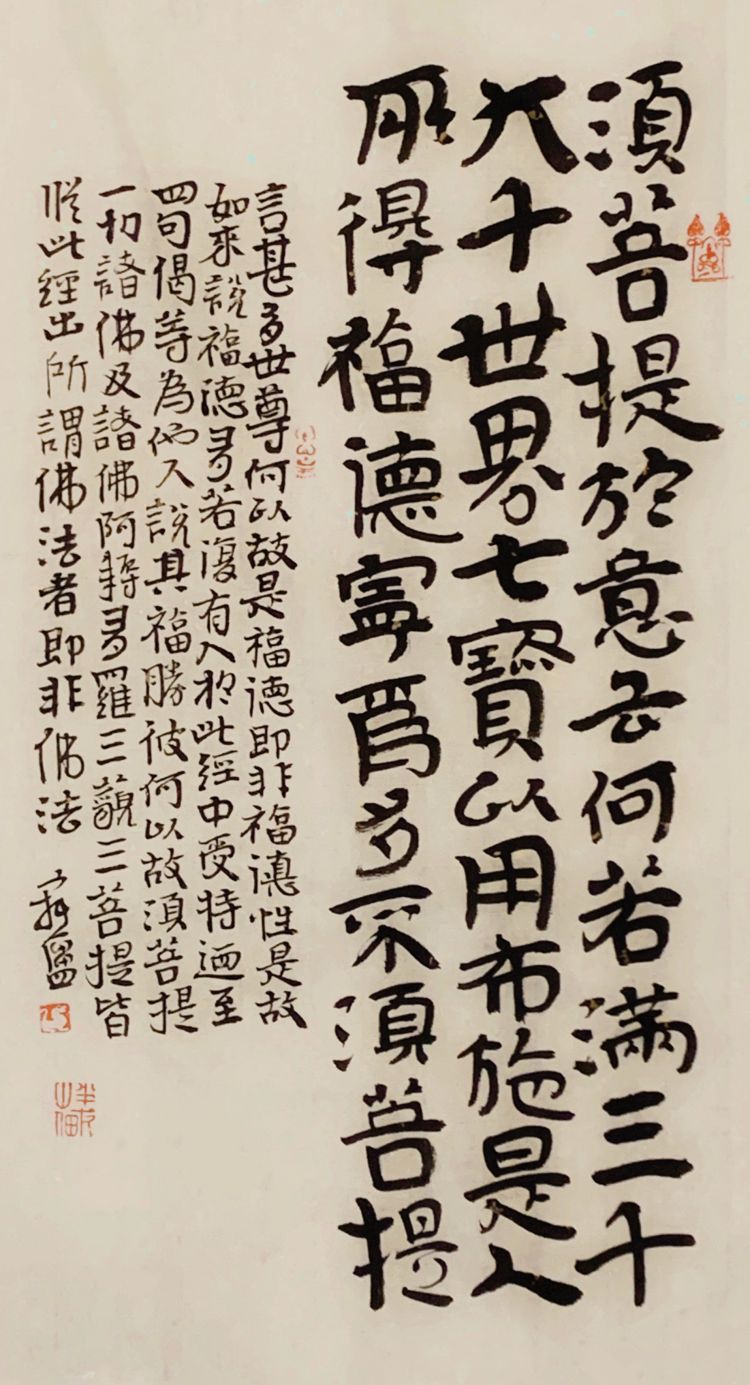 須菩提於意云何若滿三千
大千世界七寶以用布施是人
所得福德寧爲多不須菩提
言甚多世尊何以故是福德即非福德性是故
如來說福德多若復有人於此經中受持迺至
四句偈等為他人說其福勝彼何以故須菩提
一切諸佛及諸佛阿耨多羅三藐三菩提皆
從此經出所謂佛法者即非佛法